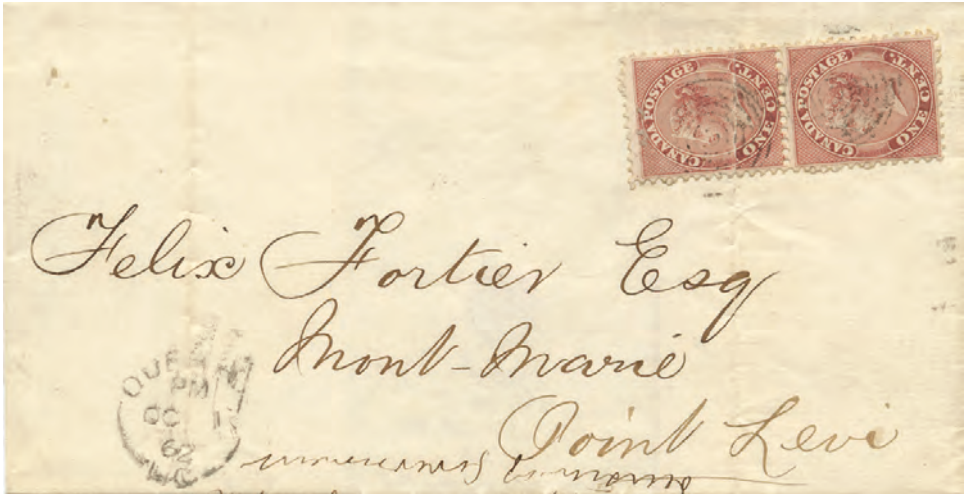 CANADA POSTAGE ONE CENT.
CANADA POSTAGE ONE CENT.
Felix Fortier Esq
Mont-Marie
Point Levi
PM
OC
62